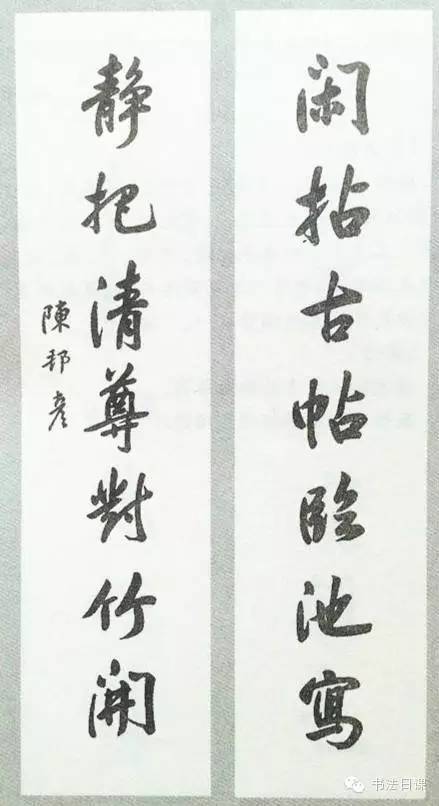 闲拈古帖臨池寫
静把清尊對竹開
陳邦彦
书法日课